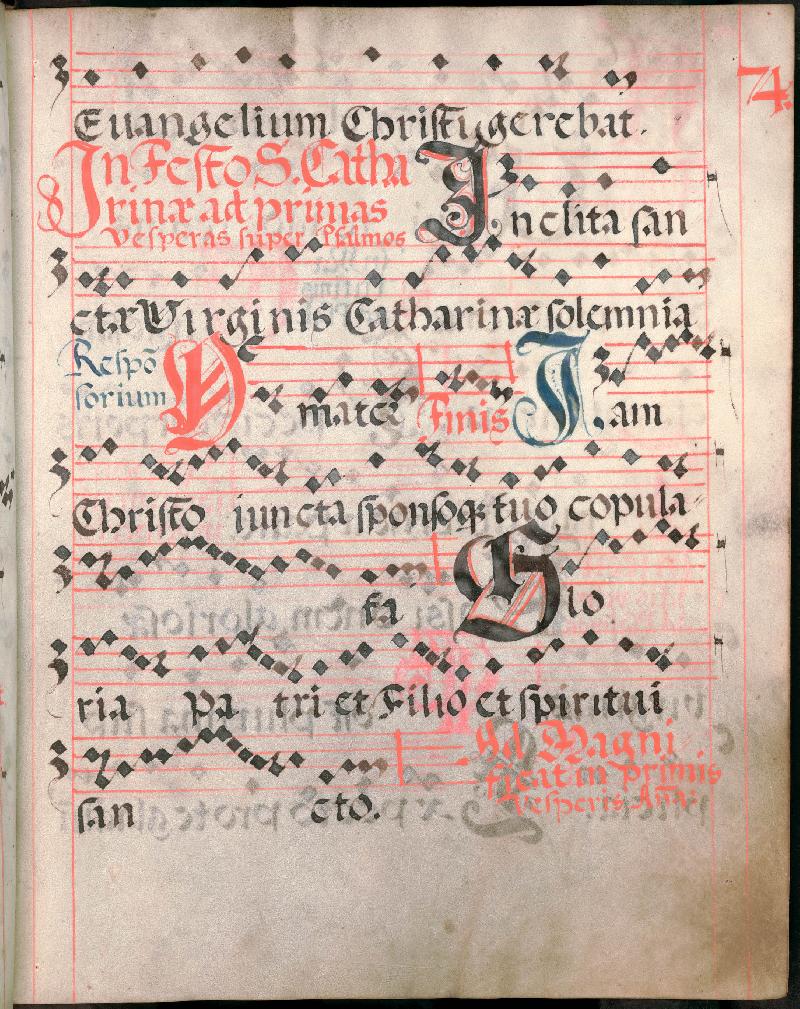 74.
Euangelium Christi gerebat.
In Festo S. Catha
rinæ ad primas
Vesperas super Psalmos
Inclita san
ctæ Virginis Catharinæ solemnia
Respõ
sorium
O mater
Finis
Jam
Christo juncta sponsoq; tuo copula
ta
Glo
ria Pa tri et Filio et spiritui
san cto.
Ad Magni
ficat in primis
Vesperis Aña.